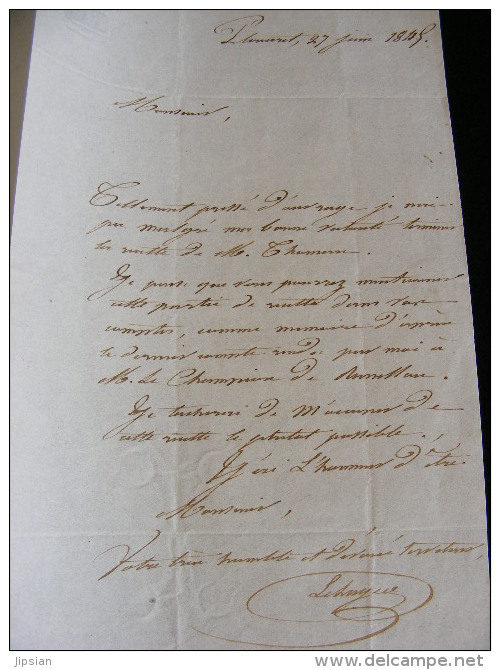 Plouaret, 27 juin 1845.
Monsieur,
Tellement pressé d'ouvrage, je n'ai
pu malgré ma bonne volonté terminer
la recette de M. Thomas.
Je pense que vous pourrez mentionner
cette partie de recette dans vos
comptes, comme mémoire d'après
le dernier compte rendu par moi à
M. Le Champion de
Je tacherai de m'occuper de
cette recette le plutot possible.
J'ai L'honneur d'être
Monsieur,
Votre très humble et dévoué serviteur,
jipsian
http://www.delcampe.net